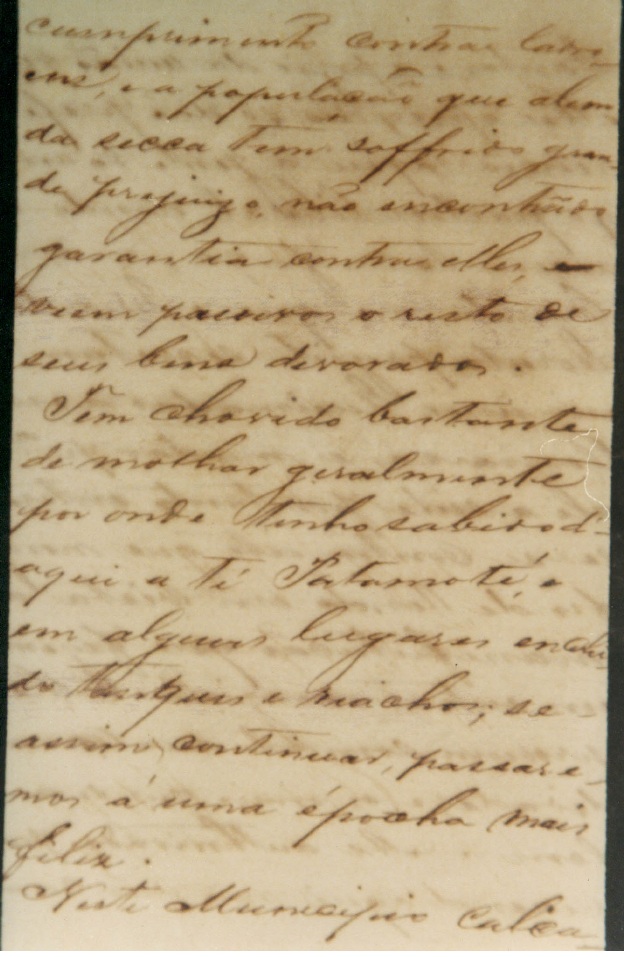 cumprimento contra ladro-
ens, e a população que alem
da secca tem soffrido gran-
de prejuizo, não encontrādo
garantia contra elles, e
veem passivos o resto de
seus bens devorados.
Tem chovido bastante
de molhar geralmente
por onde tenho sabido d'-
aqui a té Patamoté, e
em alguns lugares enchi
do tanques e riachos; se-
assim continuar, passare-
mos á uma épocha mais
feliz.
Neste Municipio calcu-